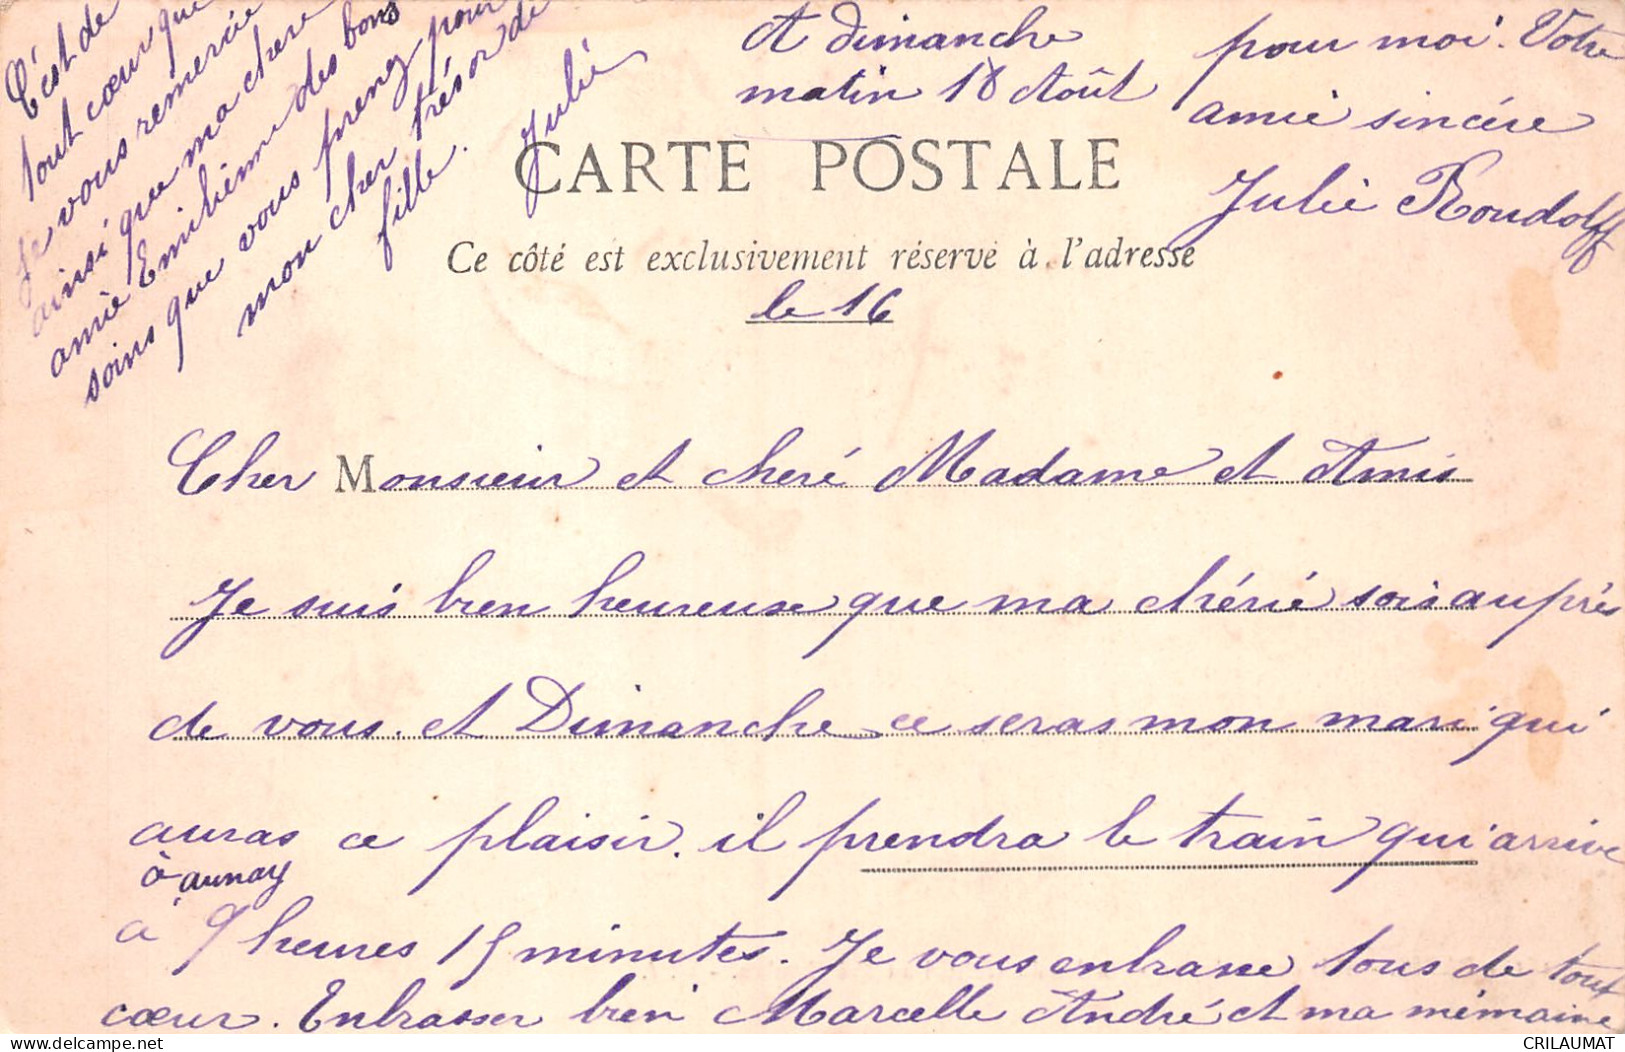 C'est de
tout cœur que
je vous remercie
ainsi que ma chere
amie Emilienn des bons
soins que vous preney pour
mon cher trésor de
fille. Julie
A dimanche
matin 18 Août
pour moi. Votre
amie sincère
Julie Roudolff
CARTE POSTALE
Ce côté est exclusivement réservé à l'adresse
le 16
Cher Monsieur et cheré Madame et Amis
Je suis bien heureuse que ma chérie sois auprès
de vous. et Dimanche ce seras mon mari qui
auras ce plaisir. il prendra le train qui arrive
à aunay
à 9 heures 15 minutes. Je vous enbrasse tous de tout
cœur. Enbrasser bien Marcelle André et ma mémaine
CRILAUMAT